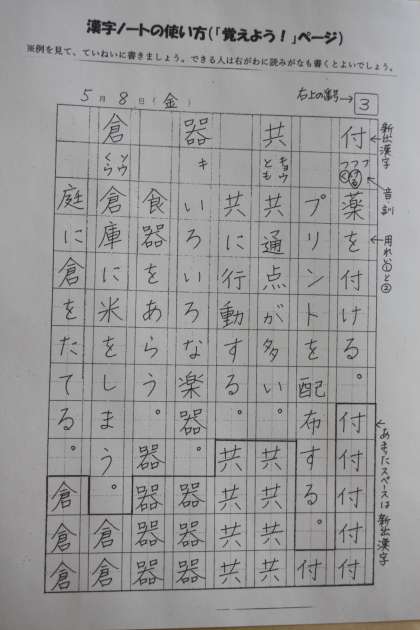 漢字ノートの使い方(「覚えよう!」ページ)
※例を見て、ていねいに書きましょう。できる人は右がわに読みがなも書くとよいでしょう。
5月8日(金)
右上の番号→3
付
共
器
倉
←新出漢字
キョウ
とも
キ
ソウ
くら
音訓
薬を付ける。付付付付付
←用れい①と②
プリントを配布する。付
共通点が多い。共共共共
共に行動する。共共共共
いろいろな楽器。器器器
食器をあらう。器器器器
倉庫に米をしまう。倉倉
庭に倉をたてる。倉倉倉
←あまったスペースは新出漢字